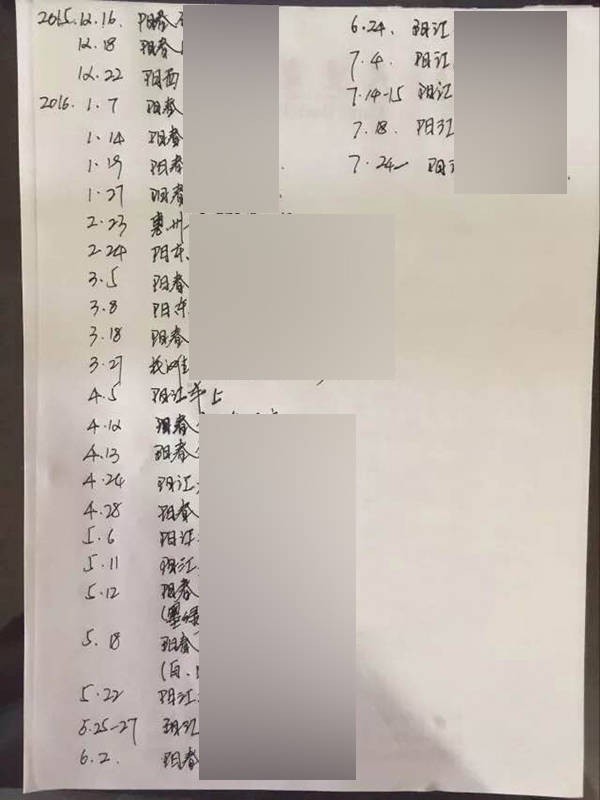 2015.12.16. 阳春
12.18 阳春
12.22 阳西
2016. 1.7 阳春
1.14 阳春
1.19 阳春
1.27 阳春
2.23 惠州
2.24 阳东
3.5 阳春
3.8 阳东
3.18 阳春
3.27
4.5 阳江车上
4.12 阳春
4.13 阳春
4.24 阳江
4.28 阳春
5.6 阳江
5.11 阳江
5.12 阳春
(墨绿
5.18 阳春
(白.
5.22 阳江
5.25-27 阳江
6.2. 阳春
6.24. 阳江
7.4. 阳江
7.14-15 阳江
7.18. 阳江
7.24 阳江